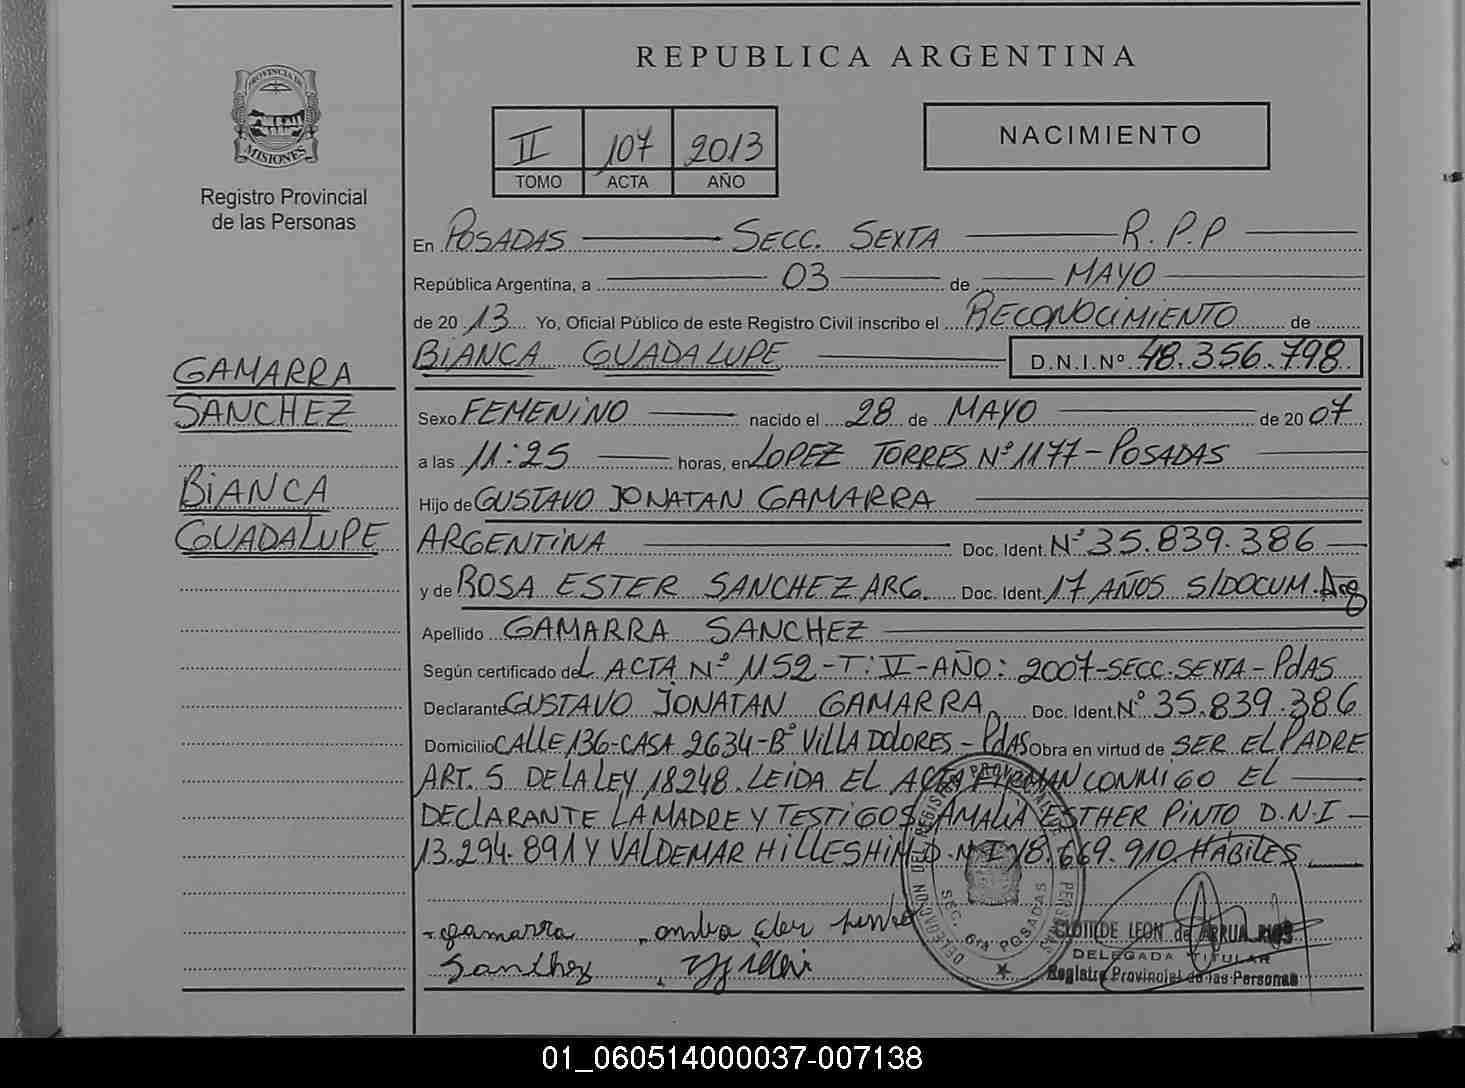 REPUBLICA ARGENTINA
PROVINCIA DE
MISIONES
Registro Provincial
de las Personas
II 107 2013
TOMO ACTA AÑO
NACIMIENTO
En POSADAS SECC. SEXTA R.P.P
República Argentina, a 03 de MAYO
de 2013 Yo, Oficial Público de este Registro Civil inscribo el RECONOCIMIENTO de
BIANCA GUADALUPE D.N.I.Nº 48.356.798
GAMARRA
SANCHEZ
BIANCA
GUADALUPE
Sexo FEMENINO nacido el 28 de MAYO de 2007
a las 11:25 horas, en LOPEZ TORRES Nº 1177-POSADAS
Hijo de GUSTAVO JONATAN GAMARRA
ARGENTINA Doc. Ident. Nº 35.839.386
y de ROSA ESTER SANCHEZ ARG. Doc. Ident. 17 AÑOS S/DOCUM. Arg
Apellido GAMARRA SANCHEZ
Según certificado del ACTA Nº 1152-T: V-AÑO: 2007-SECC.SEXTA-PdAS
Declarante GUSTAVO JONATAN GAMARRA Doc. Ident. Nº 35.839.386
Domicilio CALLE 136-CASA 2634-Bº VILLA DOLORES-PdAS Obra en virtud de SER EL PADRE
ART. 5 DE LA LEY 18248. LEIDA EL ACTA FIRMAN CONMIGO EL
DECLARANTE LA MADRE Y TESTIGOS AMALIA ESTHER PINTO D.N.I
13.294.891 Y VALDEMAR HILLESHIM D.N.I 18.669.910 HÁBILES
Gamarra
Sanchez
DELEGACION DEL REGISTRO PROVINCIAL DE LAS PERSONAS
SEC. 6ta POSADAS
CLOTILDE LEON de ARRUA RIOS
DELEGADA TITULAR
Registro Provincial de las Personas
01_060514000037-007138